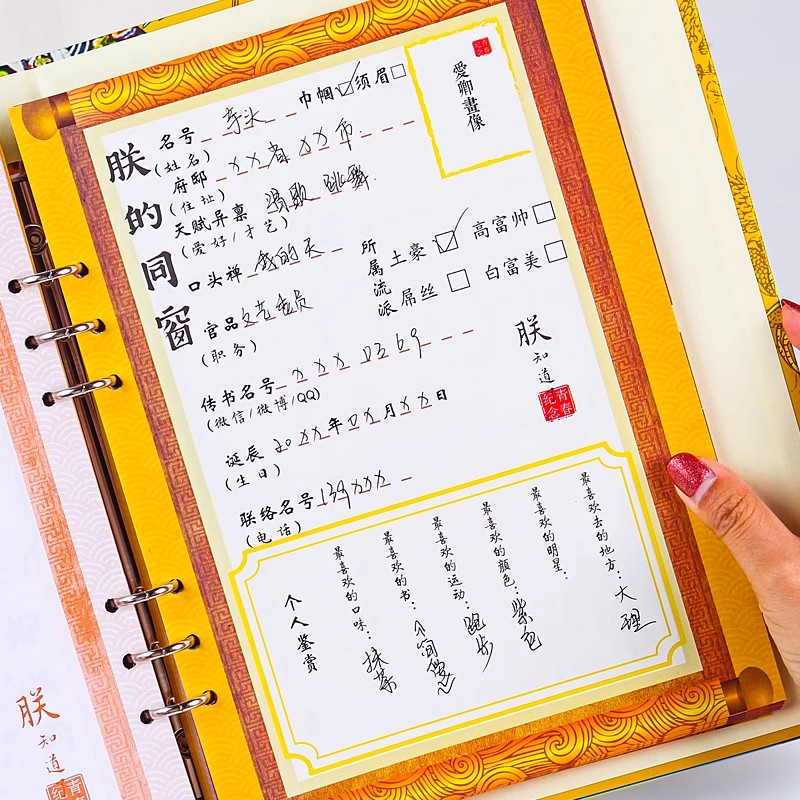 朕的同窗
巾帼☑须眉☐
名号 芋头
(姓名)
府邸 ××省 ××市
(住址)
天赋异禀 唱歌 跳舞
(爱好/才艺)
口头禅 我的天
官品 文艺委员
(职务)
所属流派
土豪☑ 高富帅☐
屌丝☐ 白富美☐
传书名号 ×××0369
(微信/微博/QQ)
诞辰 20××年0×月××日
(生日)
联络名号 139×××
(电话)
愛卿畫像
朕
知道
青春纪念
最喜欢去的地方：大理
最喜欢的明星：
最喜欢的颜色：紫色
最喜欢的运动：跑步
最喜欢的书：
最喜欢的口味：抹茶
个人鉴赏
朕
知道